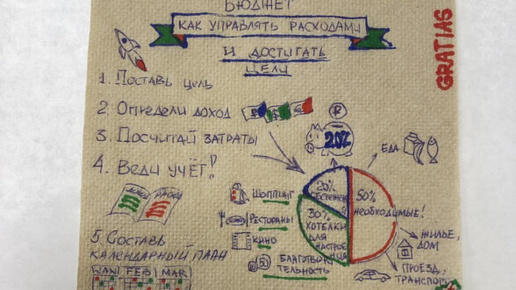 БЮДЖЕТ
КАК УПРАВЛЯТЬ РАСХОДАМИ
И ДОСТИГАТЬ
ЦЕЛИ
GRATIAS
1. ПОСТАВЬ ЦЕЛЬ
2. ОПРЕДЕЛИ ДОХОД
3. ПОСЧИТАЙ ЗАТРАТЫ
4. ВЕДИ УЧЁТ!
5. СОСТАВЬ
КАЛЕНДАРНЫЙ ПЛАН
WANI FEB MAR
₽
20%
ЕДА
20%
50%
НЕОБХОДИМЫЕ!
30%
ХОТЕЛКИ
ДЛЯ
ШОППИНГ
РЕСТОРАНЫ
КИНО
БЛАГОТВОРИ
ТЕЛЬНОСТЬ
ЖИЛЬЕ,
ДОМ
ПРОЕЗД,
ТРАНСПОРТ